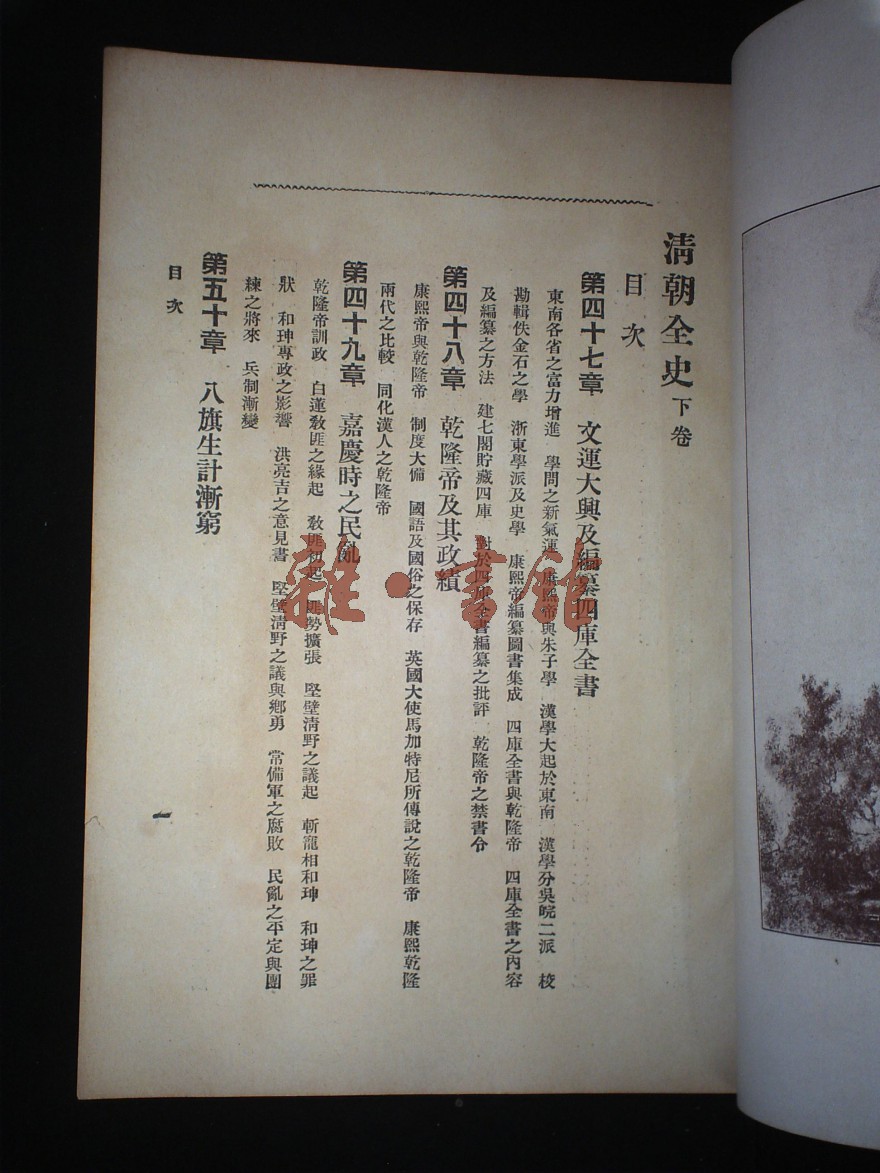 清朝全史 下卷
目次
第四十七章 文運大興及編纂四庫全書
東南各省之富力增進 學問之新氣運 康熙帝與朱子學 漢學大起於東南 漢學分吳皖二派 校
勘輯佚金石之學 浙東學派及史學 康熙帝編纂圖書集成 四庫全書與乾隆帝 四庫全書之內容
及編纂之方法 建七閣貯藏四庫 對於四庫全書編纂之批評 乾隆帝之禁書令
第四十八章 乾隆帝及其政績
康熙帝與乾隆帝 制度大備 國語及國俗之保存 英國大使馬加特尼所傳說之乾隆帝 康熙乾隆
兩代之比較 同化漢人之乾隆帝
第四十九章 嘉慶時之民亂
乾隆帝訓政 白蓮敎匪之緣起 敎匪初起 匪勢擴張 堅壁淸野之議起 斬寵相和珅 和珅之罪
狀 和珅專政之影響 洪亮吉之意見書 堅壁淸野之議與鄉勇 常備軍之腐敗 民亂之平定與團
練之將來 兵制漸變
第五十章 八旗生計漸窮
目次
一
雜·書館